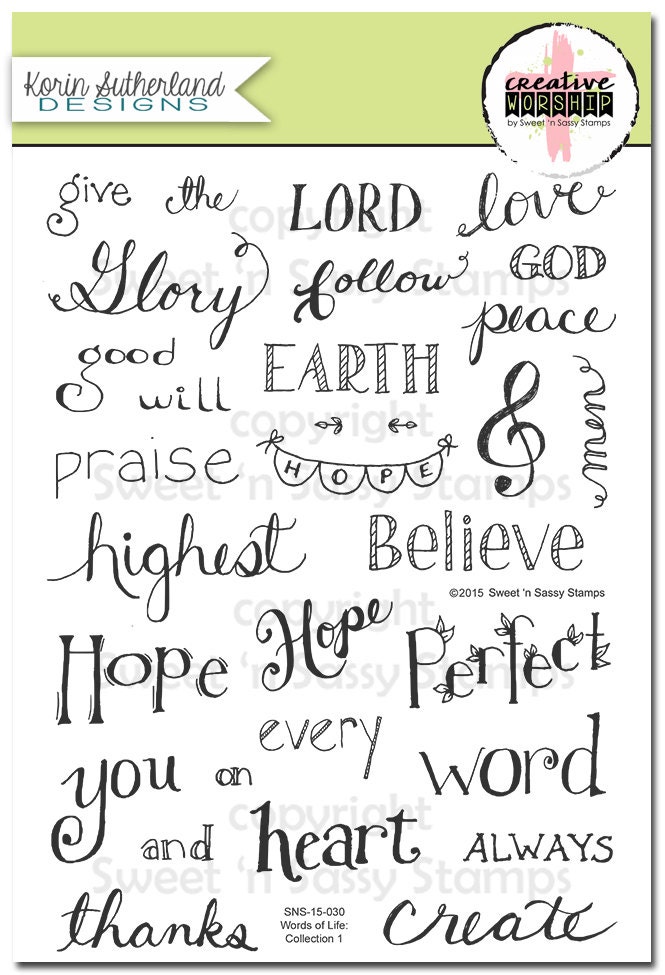 Korin Sutherland
DESIGNS
creative
WORSHIP
by Sweet 'n Sassy Stamps
give the LORD love
Glory follow GOD
peace
good will EARTH
praise HOPE
highest Believe
©2015 Sweet 'n Sassy Stamps
Hope Hope Perfect
every
you on word
and heart ALWAYS
thanks create
SNS-15-030
Words of Life:
Collection 1
copyright
Sweet 'n Sassy Stamps
copyright
Sweet 'n Sassy Stamps
copyright
Sweet 'n Sassy Stamps
copyright
Sweet 'n Sassy Stamps